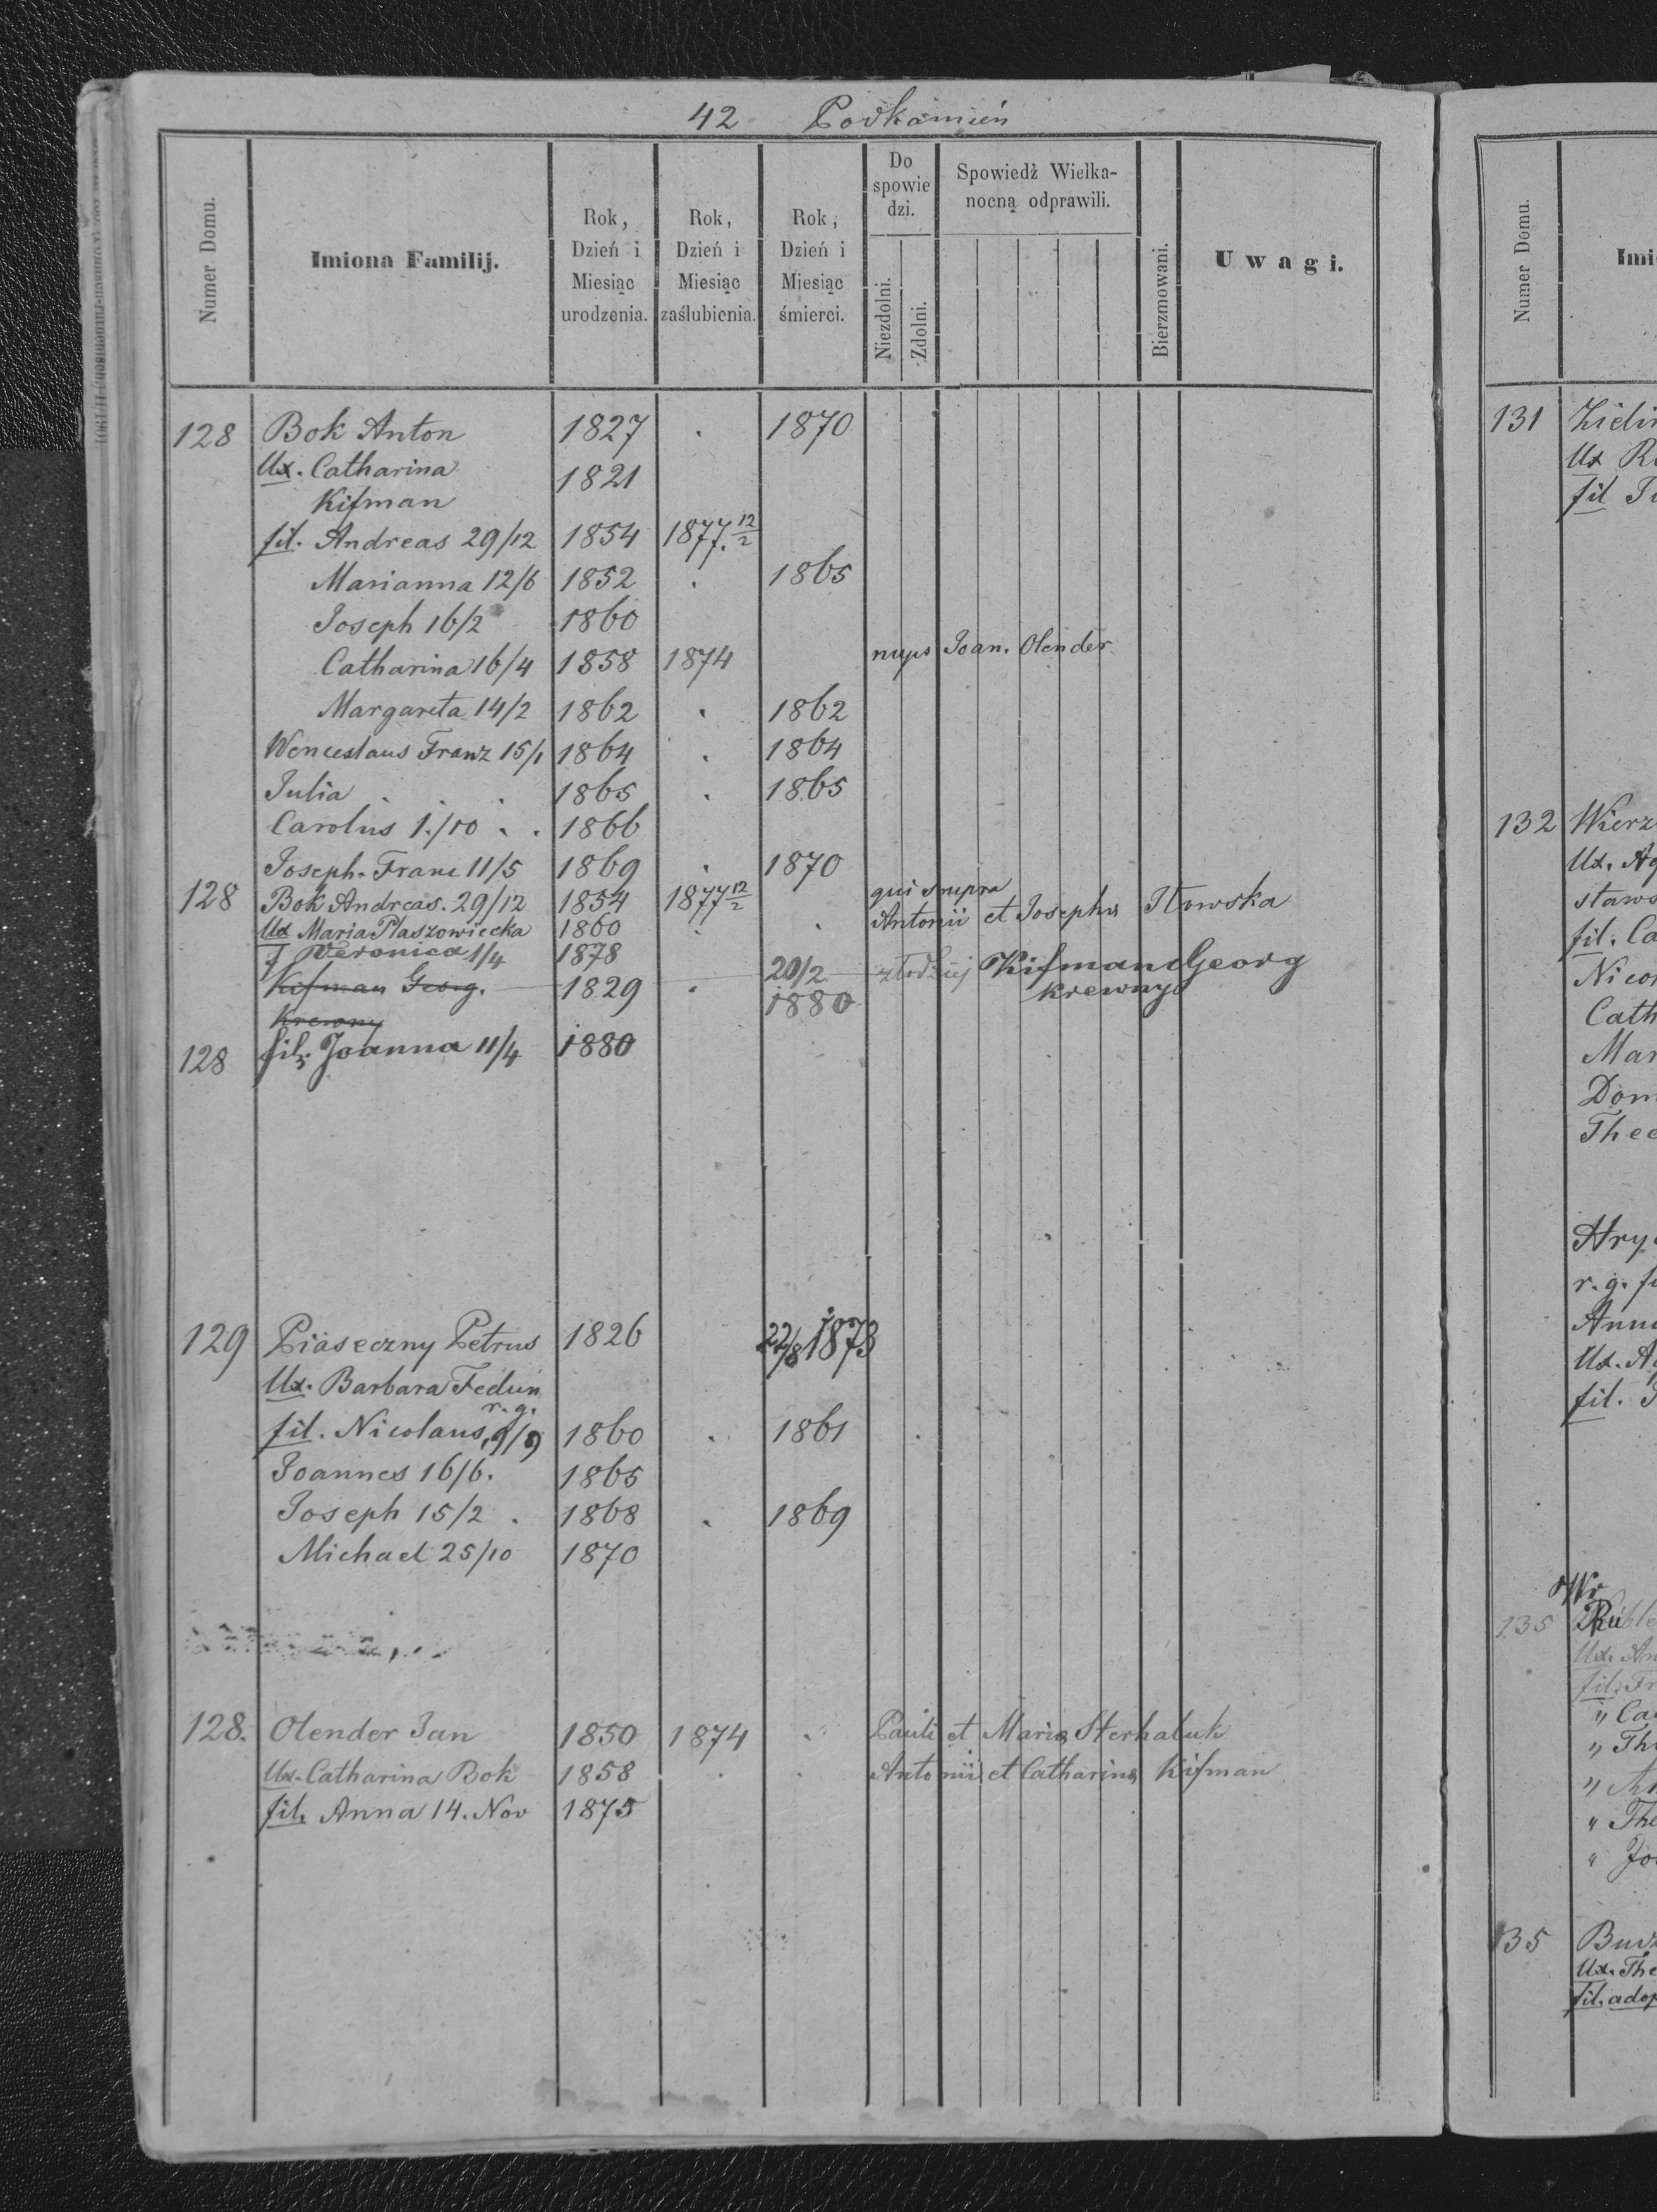 42 Podkamień
Numer Domu.
Imiona Familij.
Rok, Dzień i Miesiąc urodzenia.
Rok, Dzień i Miesiąc zaślubienia.
Rok, Dzień i Miesiąc śmierci.
Do spowiedzi.
Niezdolni.
Zdolni.
Spowiedź Wielkanocną odprawili.
Bierzmowani.
Uwagi.
128 Bok Anton 1827 . 1870
Ux. Catharina 1821
Kifman
fil. Andreas 29/12 1854 1877. 12/2
Marianna 12/6 1852 . 1865
Joseph 16/2 1860
Catharina 16/4 1858 1874 nups Joan. Olender
Margareta 14/2 1862 . 1862
Wenceslaus Franz 15/1 1864 . 1864
Julia . . 1865 . 1865
Carolus 1./10 . . 1866
Joseph-Franc 11/5 1869 . 1870
128 Bok Andreas. 29/12 1854 1877 12/2 . qui supra Antonii et Josepha Iłowska
Ux Maria Płaszowiecka 1860 .
f Veronica 1/4 1878
Kifman Georg. 1829 . 20/2 1880 złodziej Kifman Georg
Krewny krewny
128 fil. Joanna 11/4 1880
129 Piaseczny Petrus 1826 22/8 1873
Ux. Barbara Fedun
r. g.
fil. Nicolaus, 9/9 1860 . 1861
Joannes 16/6. 1865
Joseph 15/2 . 1868 . 1869
Michael 25/10 1870
128. Olender Jan 1850 1874 . Pauli et Maria Sterhaluk
Ux. Catharina Bok 1858 . . Antonii et Catharina Kifman
fil. Anna 14. Nov 1875
Numer Domu.
Imi
131 Zieli
Ux R
fil
132 Wierz
Ux. Ag
staws
fil. Ca
Nico
Cath
Mar
Dom
Thec
Hry
r. g. f
Anna
Ux. A
fil.
135
Ux. An
fil. Fr
" Ca
" Th
" The
" Jo
135 Bud
Ux. The
fil. adop